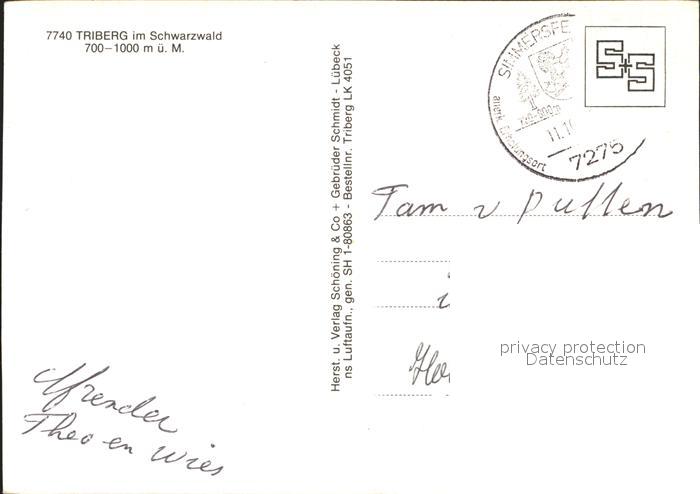 7740 TRIBERG im Schwarzwald
700–1000 m ü. M.
Herst. u. Verlag Schöning & Co + Gebrüder Schmidt - Lübeck
ns Luftaufn., gen. SH 1-80863 - Bestellnr. Triberg LK 4051
SIMMERSFE
anerk. Erholungsort
11.10
7275
S+S
Fam v Dullen
privacy protection
Datenschutz
Afzender
Theo en Wies